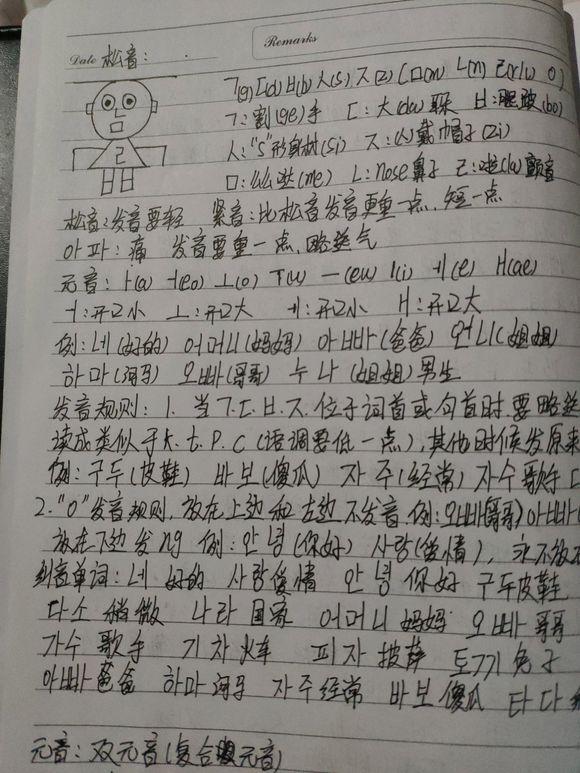 Date 松音: Remarks
ㄱ(g) ㄷ(d) ㅂ(b) ㅅ(s) ㅈ(z) ㅁ(m) ㄴ(n) ㄹ(r/l) ㅇ
ㄱ: 割(ge)手 ㄷ: 大(da) ㅂ:
ㅅ: "S"形身树(si) ㅈ: 戴帽子(zi)
ㄹ
ㅁ: 么么哒(me) ㄴ: nose 鼻子 ㄹ: 啦(la)颤音
松音: 发音要轻 紧音: 比松音发音更重一点, 短一点
아파: 痛 发音要重一点, 略送气
元音: ㅏ(a) ㅓ(eo) ㅗ(o) ㅜ(u) ㅡ(eu) ㅣ(i) ㅔ(e) ㅐ(ae)
ㅓ: 开口小 ㅗ: 开口大 ㅔ: 开口小 ㅐ: 开口大
例: 네(好的) 어머니(妈妈) 아빠(爸爸) 언니(姐姐)
하마(河马) 오빠(哥哥) 누나(姐姐)男生
发音规则: 1. 当ㄱ.ㄷ.ㅂ.ㅈ.位于词首或句首时.要略送
读成类似于k.t.p.c(语调要低一点), 其他时候发原来
例: 구두(皮鞋) 바보(傻瓜) 자주(经常) 가수 歌手
2. "ㅇ"发音规则, 放在上边和左边不发音 例: 오빠(哥哥) 아빠
放在下边发ng 例: 안녕(你好) 사랑(爱情),
单词: 네 好的 사랑爱情 안녕 你好 구두皮鞋
다소 稍微 나라 国家 어머니 妈妈 오빠 哥哥
가수 歌手 기차 火车 피자 披萨 토끼 兔子
아빠爸爸 하마 河马 자주经常 바보傻瓜 타다
元音: 双元音(复合元音)